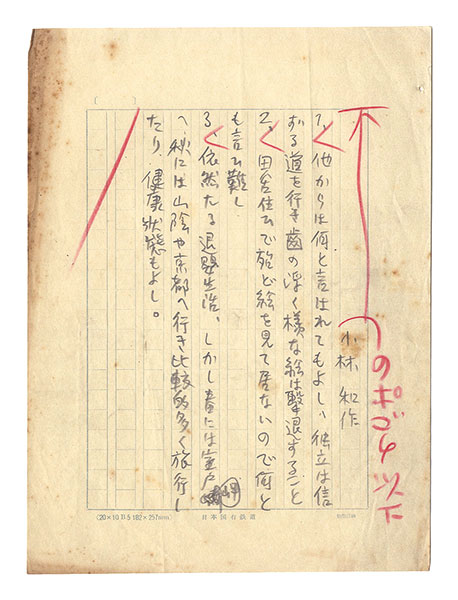 不
のポゴチ以下
小林 和作
1、他からは何と言はれてもよし、独立は信
ずる道を行き歯の浮く様な絵は撃退すること
2、田舎住ひで殆ど絵を見て居ないので何と
も言ひ難し
3、依然たる退嬰生活、しかし春には室戸岬
へ、秋には山陰や京都へ行き比較的多く旅行し
たり、健康状態もよし。
(20×10 B5 182×257mm)
日本国有鉄道